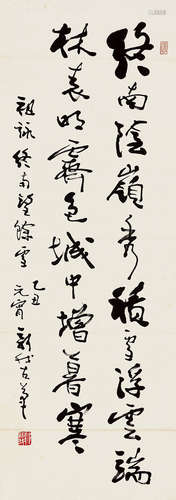 終南陰嶺秀積雪浮雲端
林表明霽色城中增暮寒
祖詠終南望餘雪
乙丑
元宵